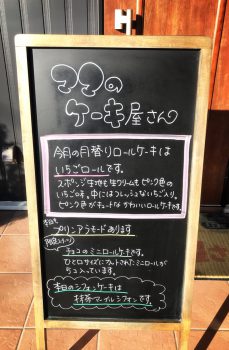 ママの
ケーキ屋さん
今月の月替りロールケーキは
いちごロールです。
スポンジ生地も生クリームもピンク色の
いちご味。中にはフレッシュないちご入り。
ピンク色がキュートなかわいいロールケーキです。
本日は
プリンアラモードあります
チョコのミニロールケーキです。
ひと口サイズにカットされたミニロールが
5コ入っています。
本日のシフォンケーキは
抹茶マーブルシフォンです